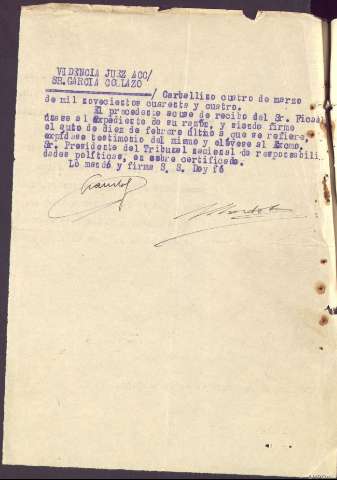 VIDENCIA JUEZ ACC/
SR. GARCIA COLLAZO
/ Carballino cuatro de marzo
de mil novecientos cuarenta y cuatro.
El precedente acuse de recibo del Sr. Fiscal
únase al expediente de su razón, y siendo firme
el auto de diez de febrero último a que se refiere,
expídase testimonio del mismo y elévese al Excmo.
Sr. Presidente del Tribunal nacional de responsabili
dades políticas, en sobre certificado.
Lo mandó y firma S. S. Doy fé